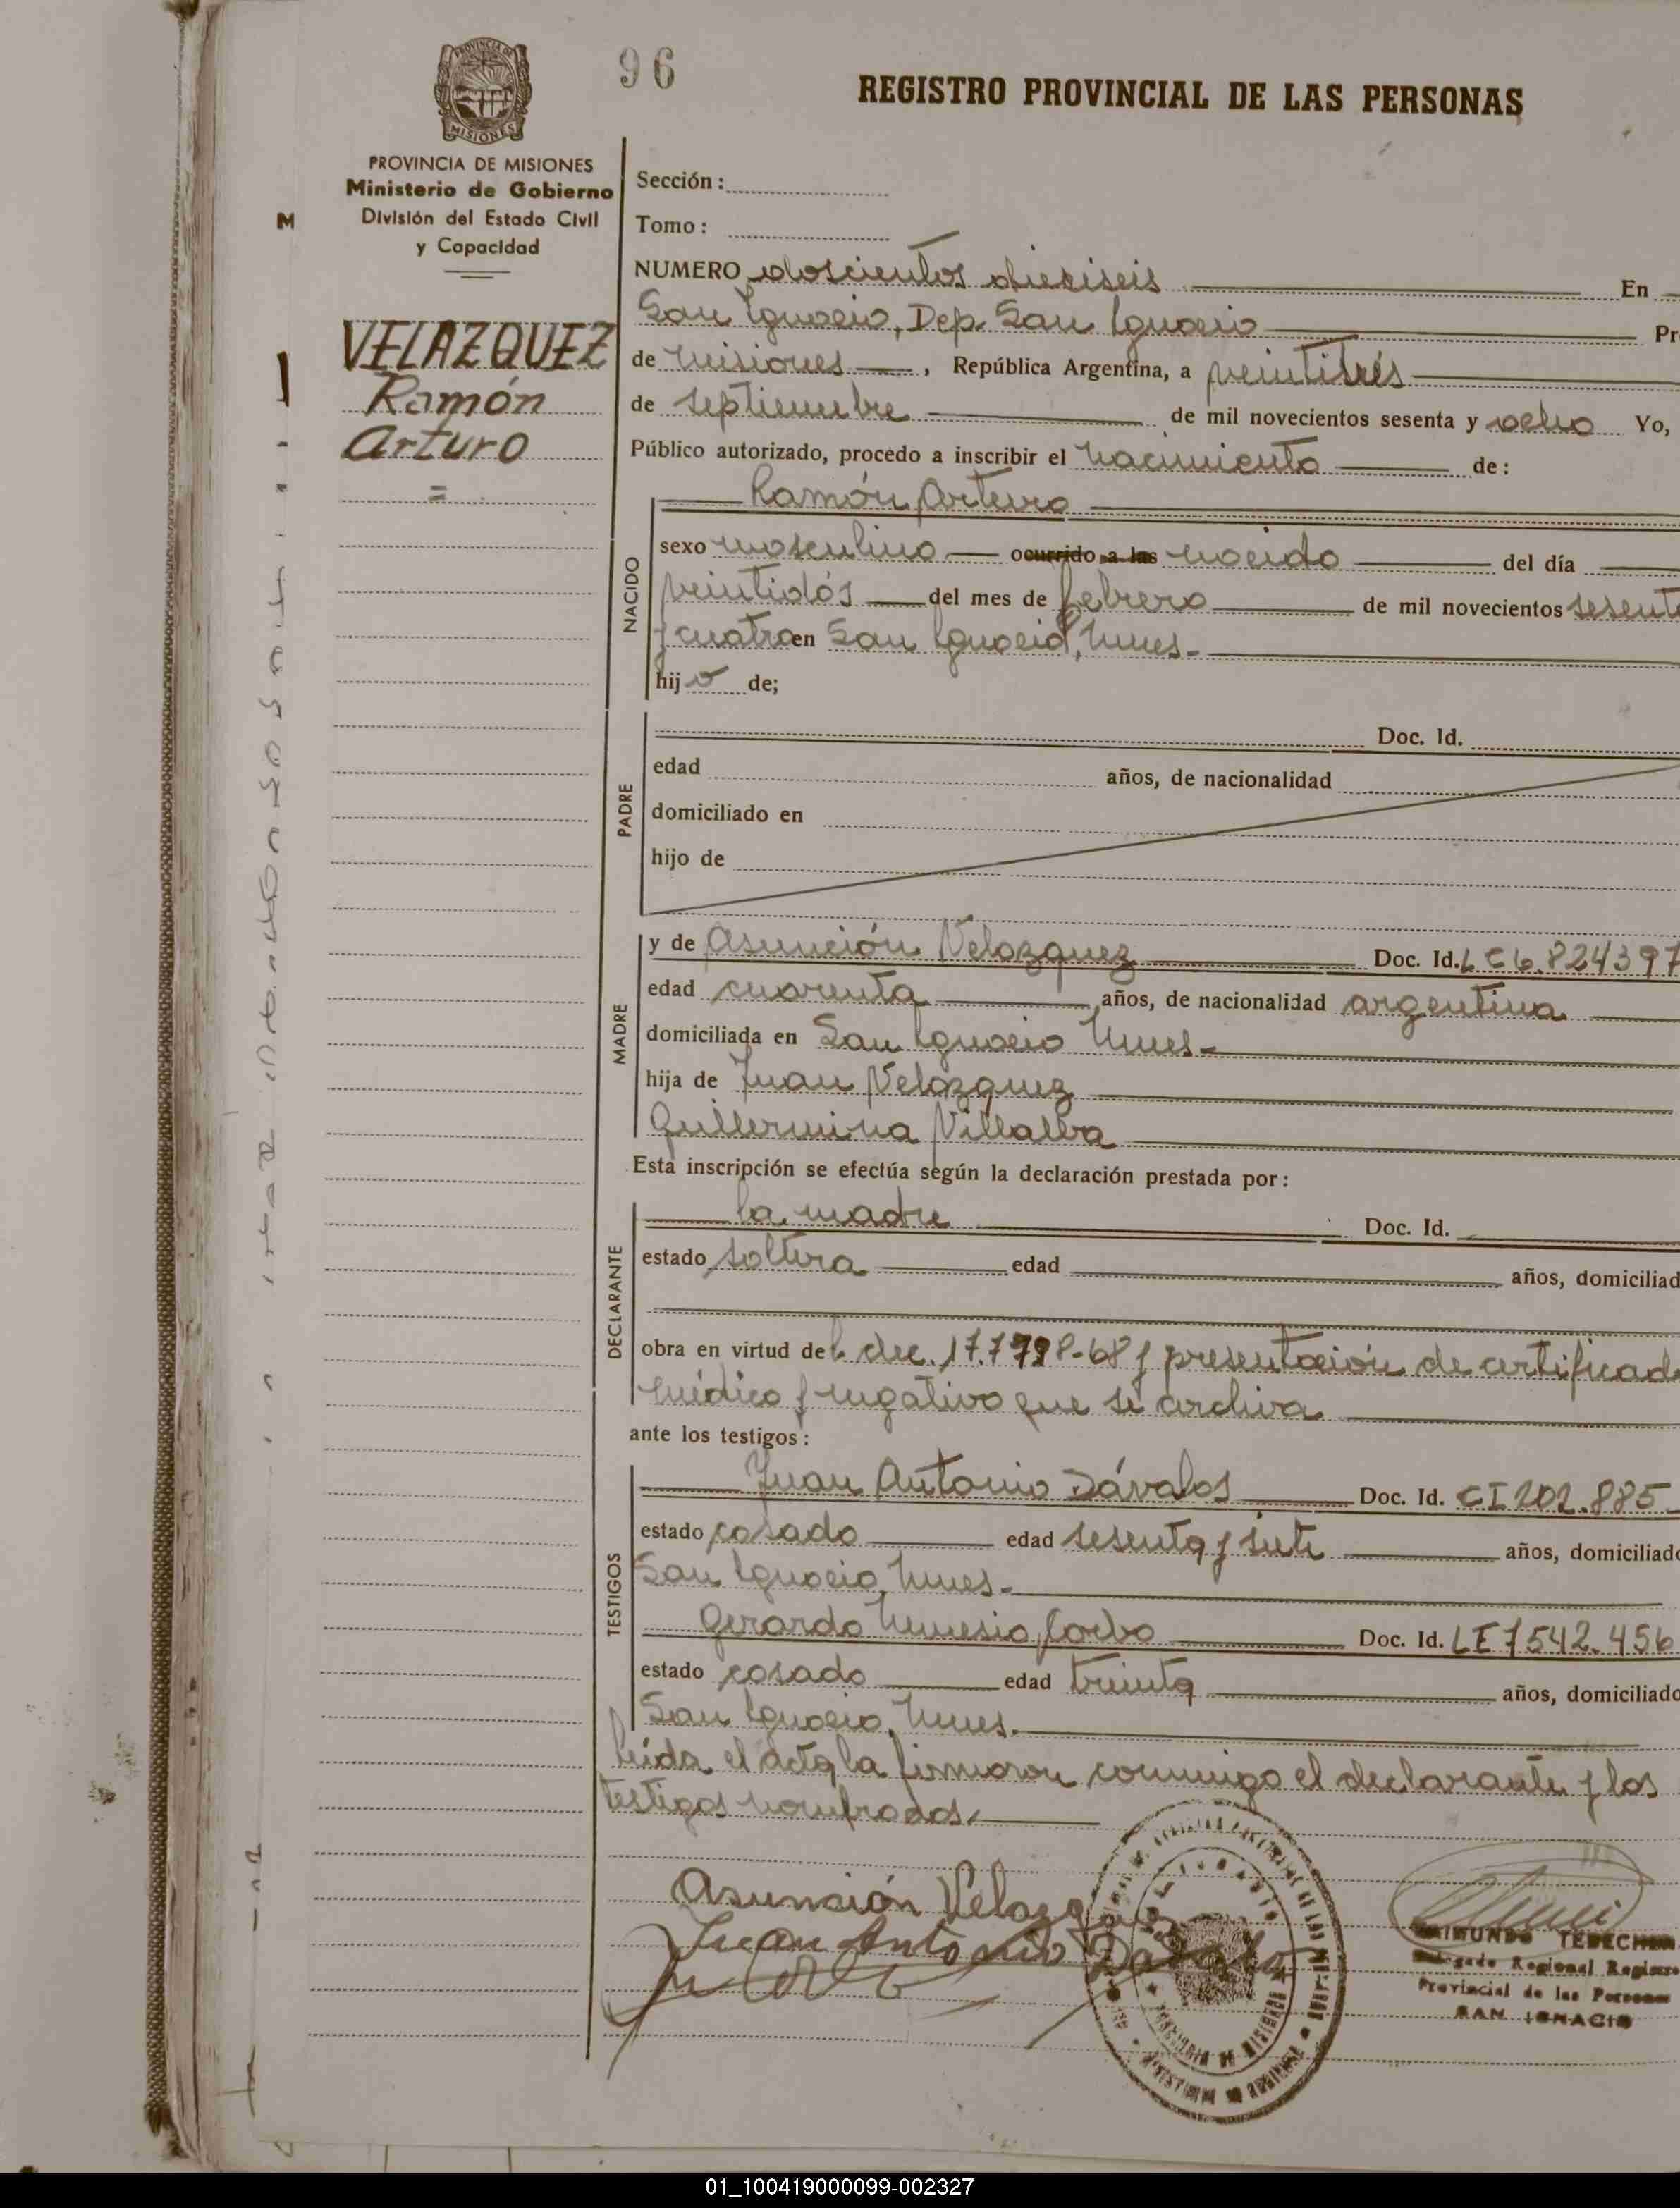 96
REGISTRO PROVINCIAL DE LAS PERSONAS
PROVINCIA DE
MISIONES
PROVINCIA DE MISIONES
Ministerio de Gobierno
División del Estado Civil
y Capacidad
M
VELAZQUEZ
Ramón
Arturo
=
Sección:
Tomo:
NUMERO doscientos dieciseis En
San Ignacio, Dep. San Ignacio Pr
de Misiones, República Argentina, a veintitrés
de septiembre de mil novecientos sesenta y ocho Yo,
Público autorizado, procedo a inscribir el nacimiento de:
Ramón Arturo
NACIDO
sexo masculino ocurrido a las nacido del día
veintidós del mes de febrero de mil novecientos sesent
y cuatro en San Ignacio, Mnes.-
hijo de;
PADRE
Doc. Id.
edad años, de nacionalidad
domiciliado en
hijo de
MADRE
y de Asunción Velazquez Doc. Id. LC 6.824397
edad cuarenta años, de nacionalidad argentina
domiciliada en San Ignacio Mnes-
hija de Juan Velázquez
Guillermina Villalba
Esta inscripción se efectúa según la declaración prestada por:
DECLARANTE
la madre Doc. Id.
estado soltera edad años, domiciliad
obra en virtud del dec. 17.798-68 y presentación de certificad
médico y negativo que se archiva
ante los testigos:
TESTIGOS
Juan Antonio Dávalos Doc. Id. CI 202.885-
estado casado edad sesenta y siete años, domiciliado
San Ignacio, Mnes.-
Gerardo Nemesio Corbo Doc. Id. LE 7542.456
estado casado edad treinta años, domiciliado
San Ignacio, Mnes.
Leída el acta la firmaron conmigo el declarante y los
testigos nombrados.
Asunción Velazquez
Juan Antonio Davalos
Delegado Regional Registro
Provincial de las Personas
SAN IGNACIO
01_100419000099-002327